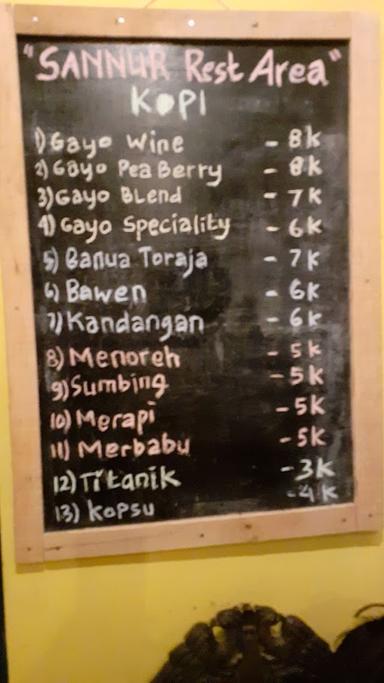 "SANNUR Rest Area"
KOPI
1) Gayo Wine - 8K
2) Gayo PeaBerry - 8K
3) Gayo BLend - 7K
4) Gayo Speciality - 6K
5) Banua Toraja - 7K
6) Bawen - 6K
7) Kandangan - 6K
8) Menoreh - 5K
9) Sumbing - 5K
10) Merapi - 5K
11) Merbabu - 5K
12) Titanik - 3K
13) kopsu - 4K